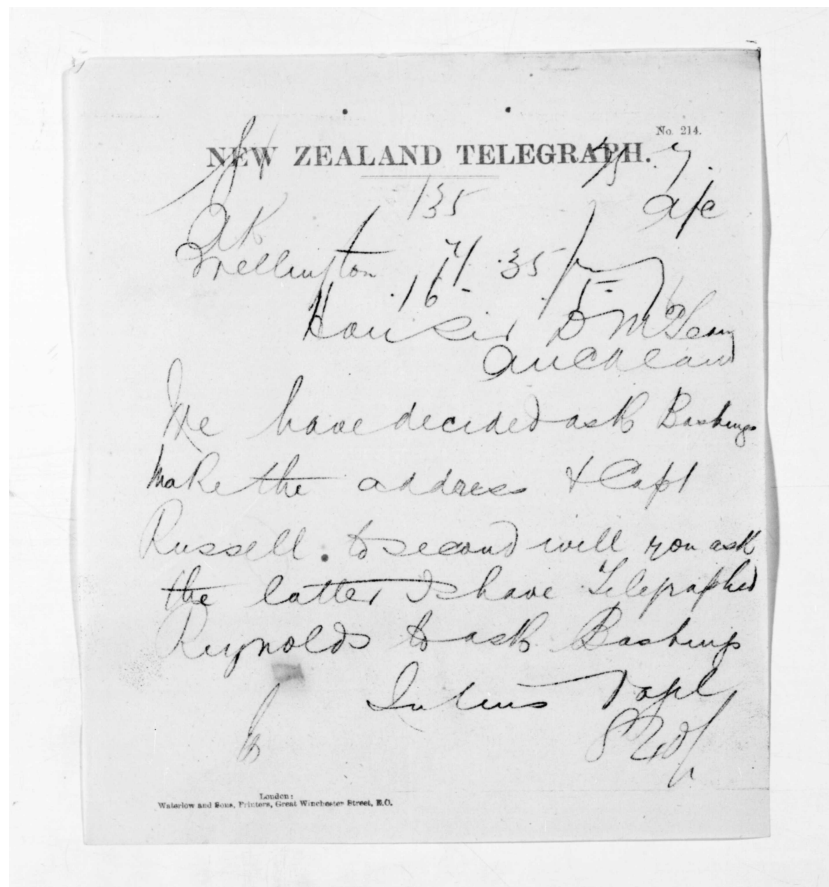 No. 214.
NEW ZEALAND TELEGRAPH.
135
a/c
AK
Wellington 7/.35 p
16 - 5 -
Hon Sir D McLean
Auckland
We have decided ask Bastings
make the address & Capt
Russell. to second will you ask
the latter I have Telegraphed
Reynolds to ask Bastings
Julius Vogel
London:
Waterlow and Sons, Printers, Great Winchester Street, E.C.